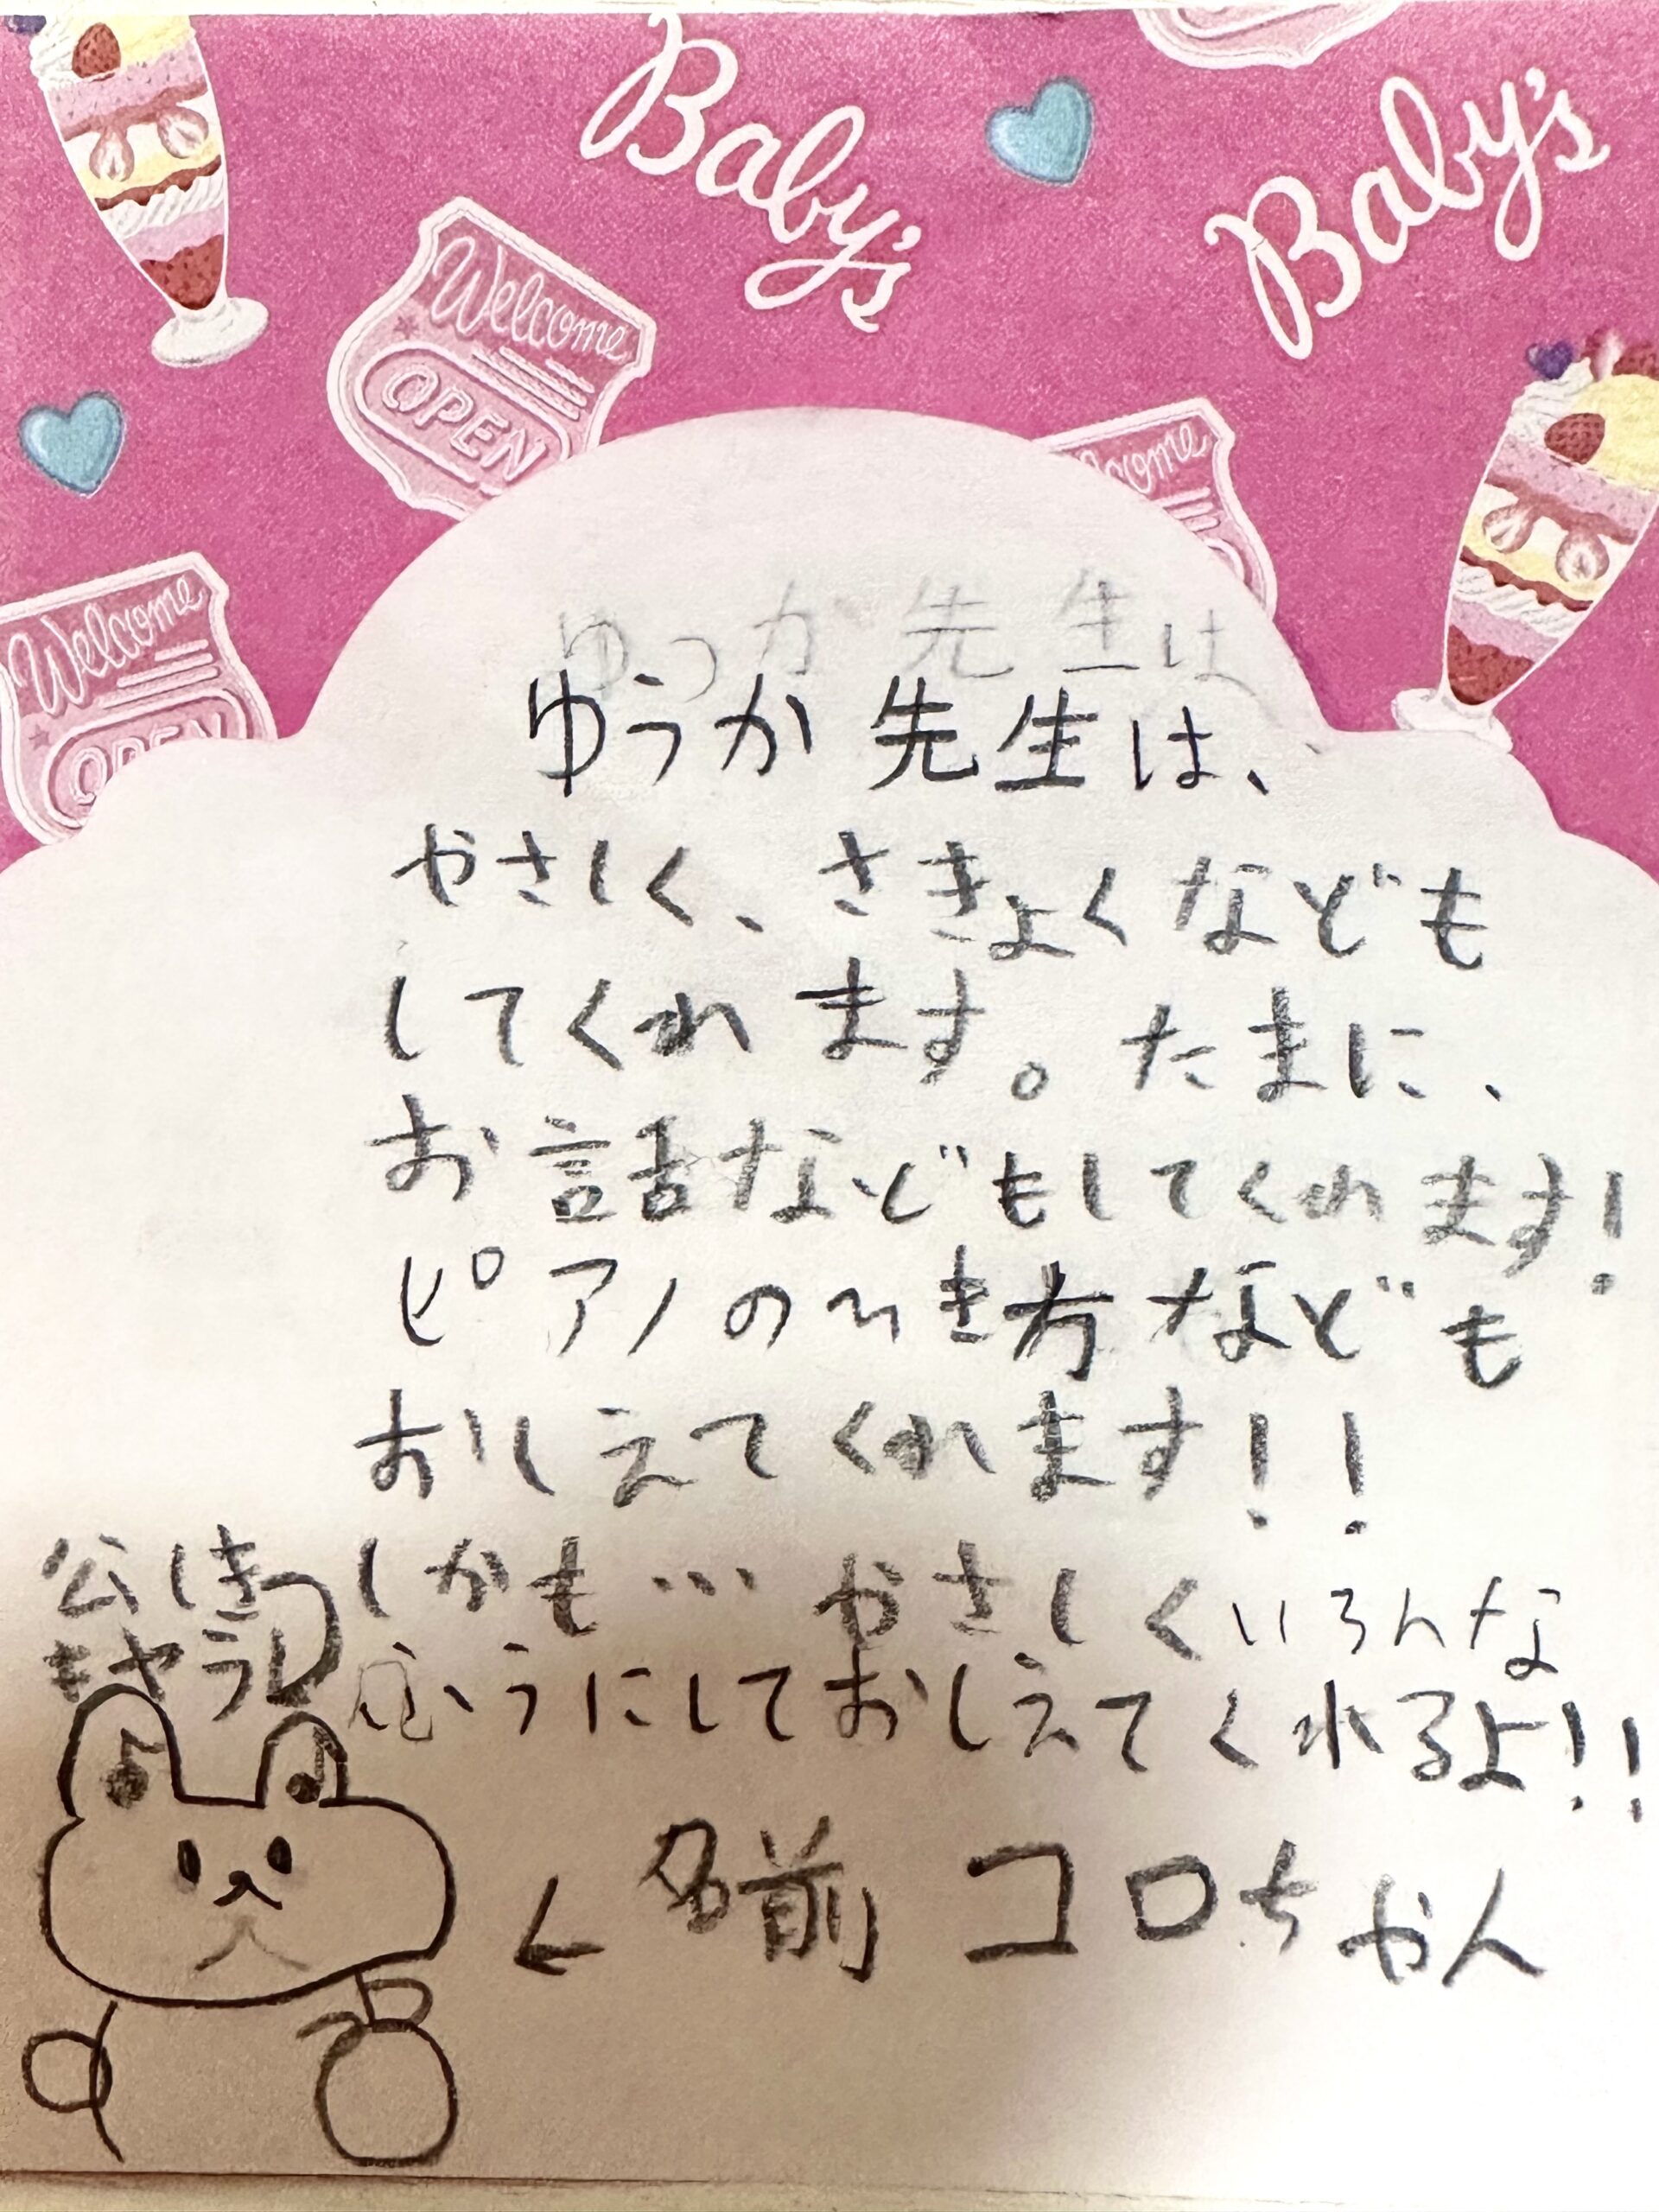 Baby's
Baby's
Welcome
OPEN
Welcome
OPEN
ゆうか先生は
ゆうか先生は、
やさしく、さきょくなども
してくれます。たまに、
お話などもしてくれます!
ピアノのひき方なども
おしえてくれます!!
しかも…やさしくいろんな
ふうにしておしえてくれるよ!!
公しき
キャラ
←名前 コロちゃん